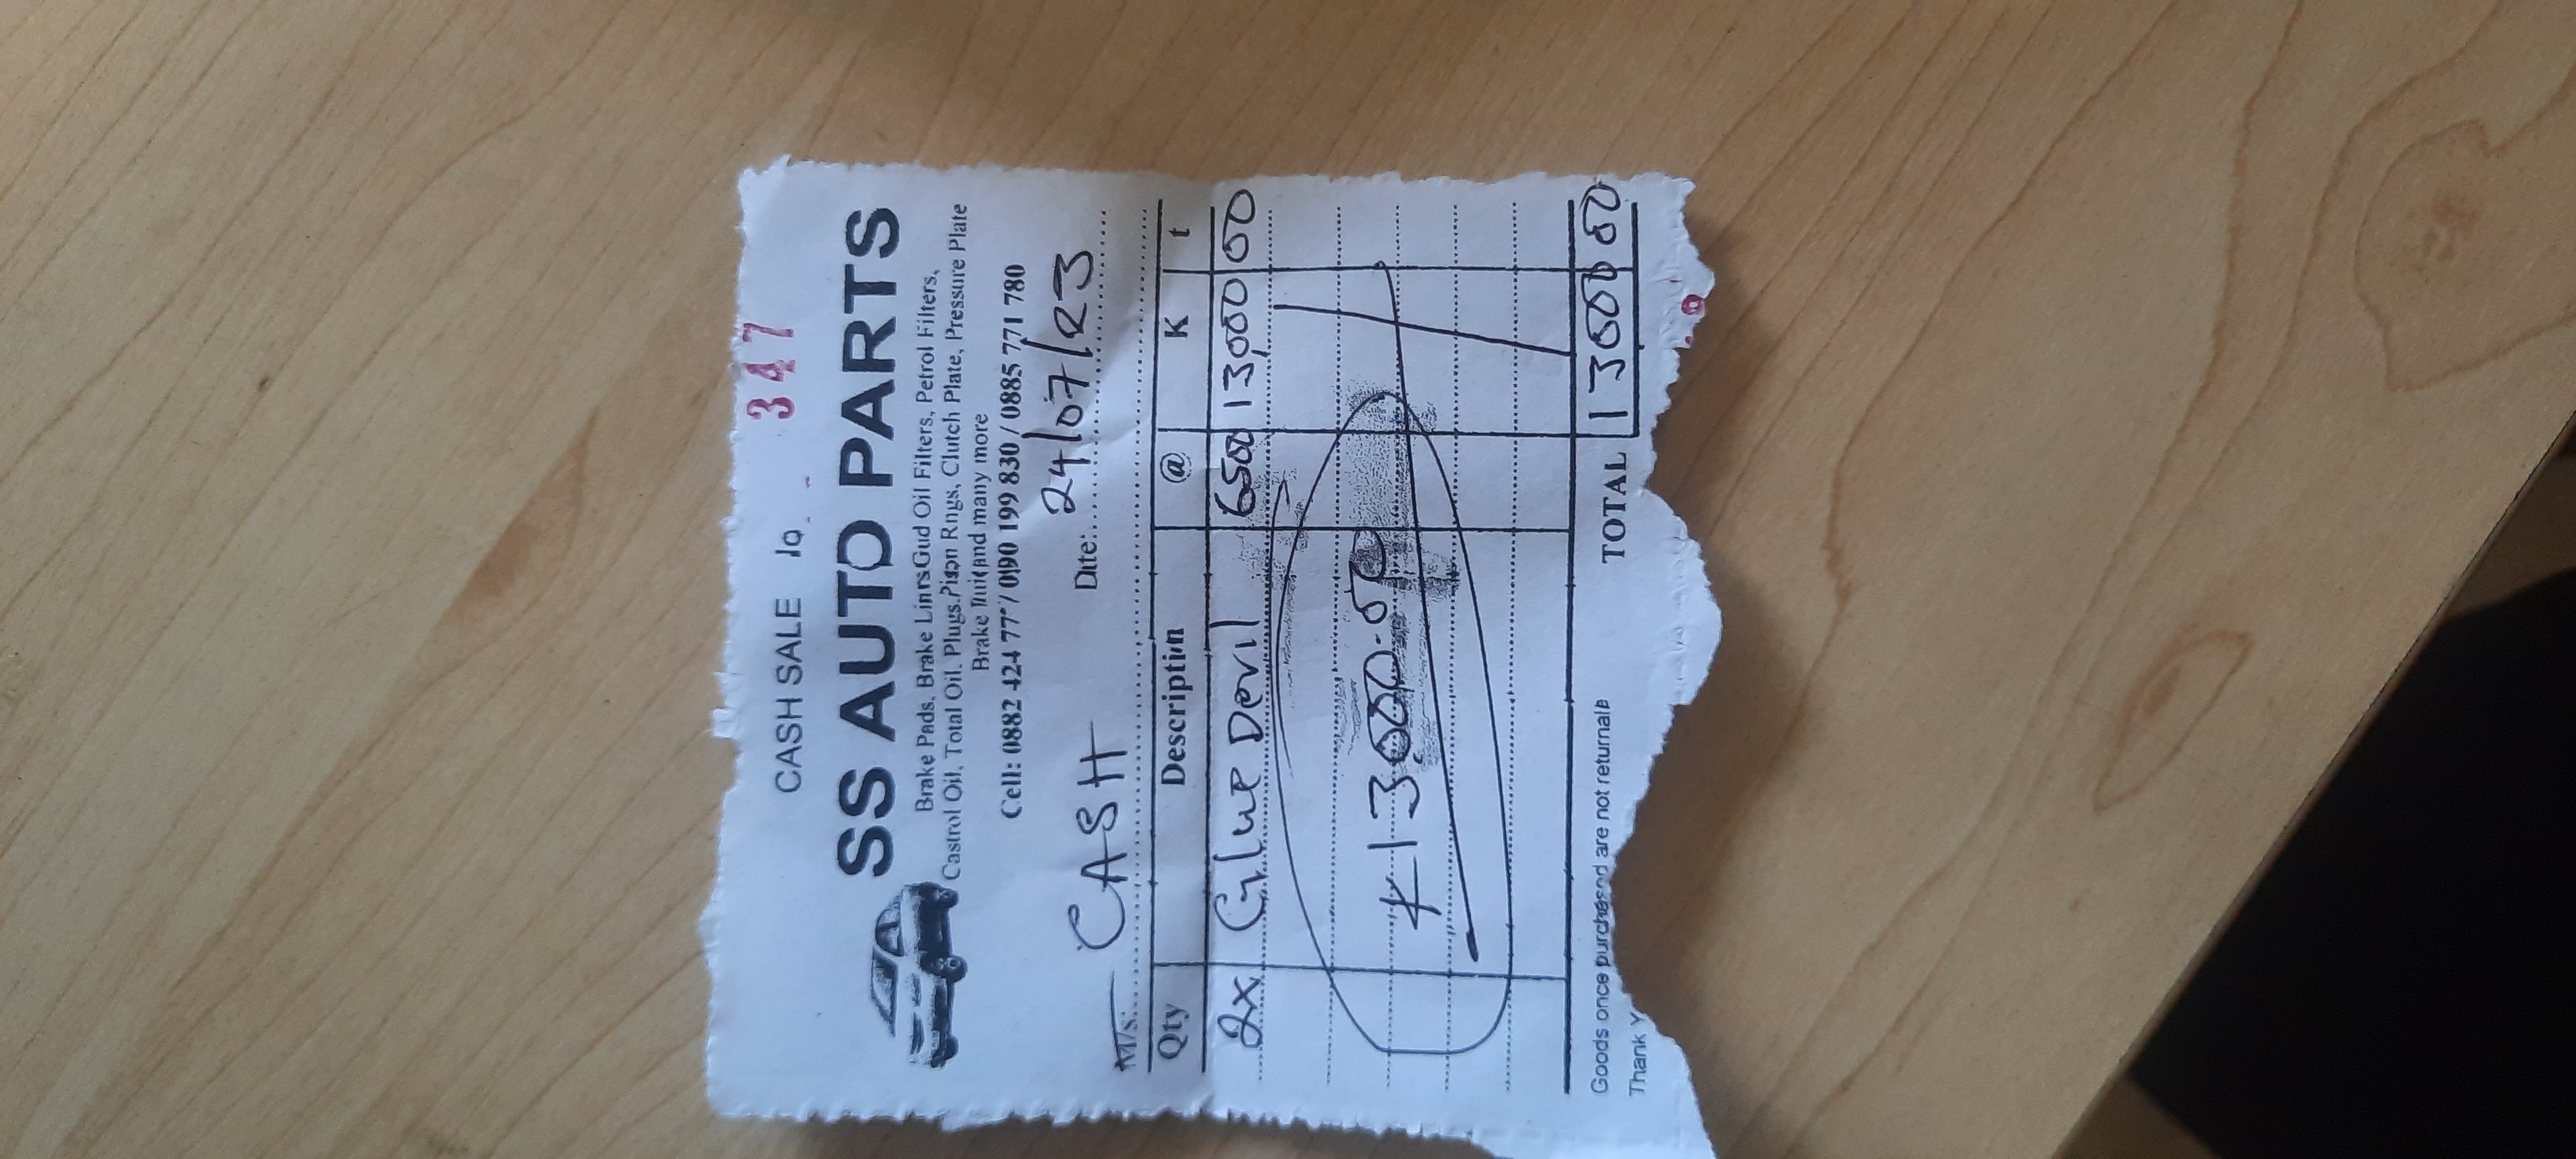 CASH SALE 347
SS AUTO PARTS
Brake Pads, Brake Gud Oil Filters, Petrol Filters,
Castrol Oil, Total Oil. Plugs. Rngs, Clutch Plate, Pressure Plate
Brake and many more
Cell: 0882 424 77 / 199 830 / 0885 771 780
M/s: CASH Date: 24/07/23
Qty Description @ K t
2x Glue Devil 6500 13,000 00
K13,000.00
Goods once purchased are not
TOTAL 13000 00
Thank